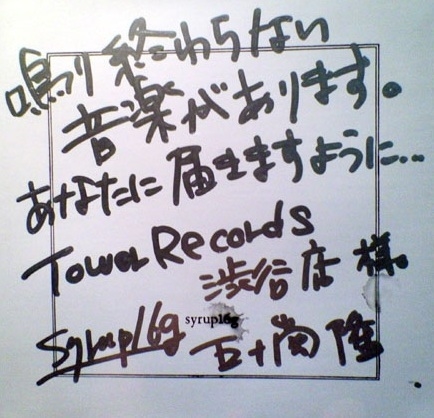 鳴り終わらない
音楽があります。
あなたに届きますように…
Tower Records
渋谷店 様
syrup16g
syrup16g
五十嵐 隆